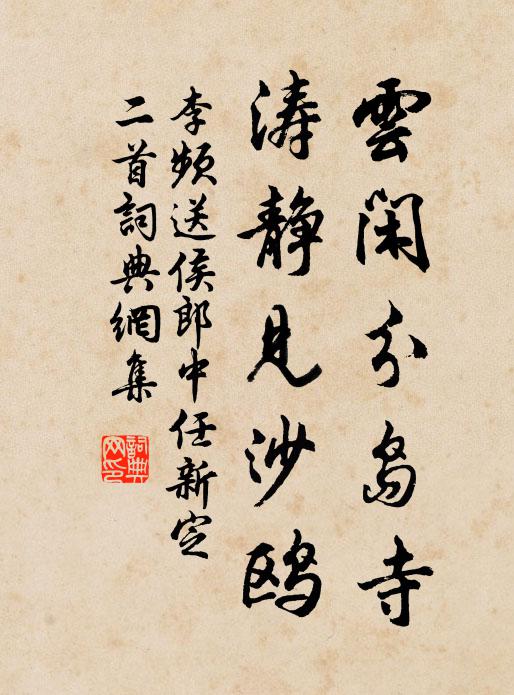 雲閑分島寺
濤靜見沙鷗
李頻送侯郎中任新定
二首詞典網集
詞典
网印